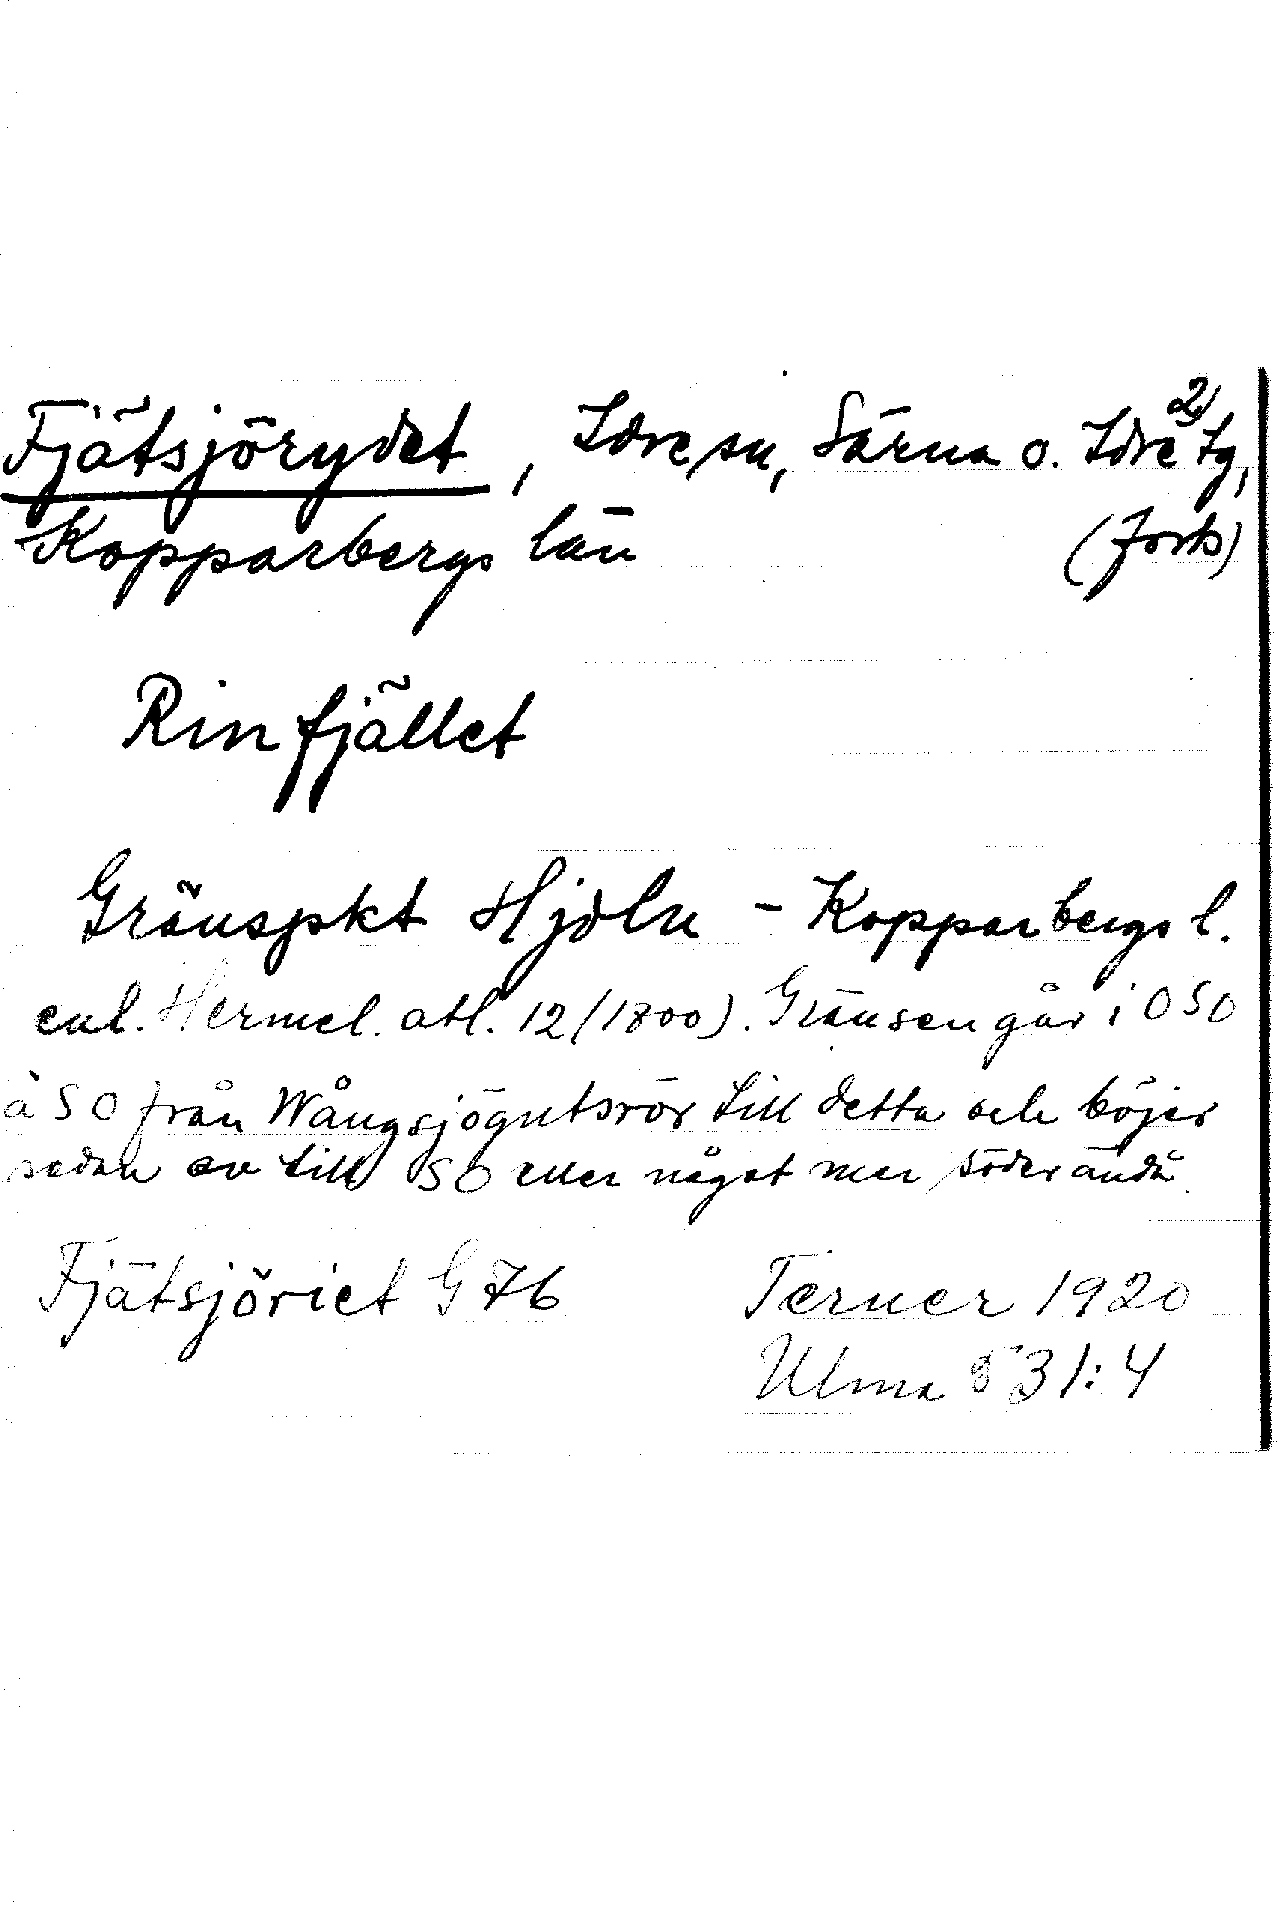 2)
Fjätsjörydet, Idre sn, Särna o. Idre tg,
Kopparbergs län (forts)
Rinfjället
Gränspkt Hjdln - Kopparbergs l.
enl. Hermel. atl. 12 (1800). Gränsen går i OSO
à SO från Wångsjögutsrör till detta och böjer
sedan av till SO eller något mer söder ändå
Fjätsjöriet G 76 Terner 1920
Ulma 531:4